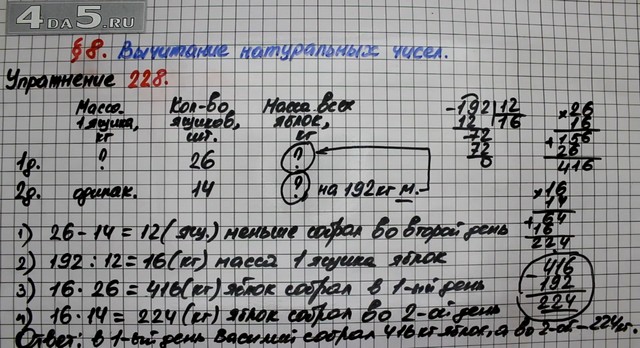 4DA5.RU
§8. Вычитание натуральных чисел.
Упражнение 228.
Масса 1 ящика, кг
Кол-во ящиков, шт.
Масса всех яблок, кг
1д. ? 26 ?
2д. одинак. 14 ? на 192 кг м.
- 192 | 12
12 | 16
72
72
0
× 26
16
+ 156
26
416
× 16
14
+ 64
16
224
- 416
192
224
1) 26 - 14 = 12 (ящ.) меньше собрал во второй день
2) 192 : 12 = 16 (кг) масса 1 ящика яблок
3) 16 · 26 = 416 (кг) яблок собрал в 1-ый день
4) 16 · 14 = 224 (кг) яблок собрал во 2-ой день
Ответ: в 1-ый день Василий собрал 416 кг яблок, а во 2-ой – 224 кг.